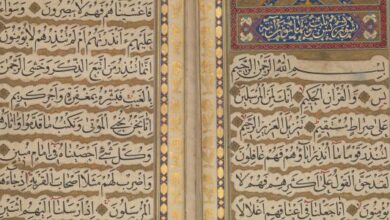 بِسْمِ اللهِ الرَّحْمٰنِ الرَّحِيمِ
يس وَالْقُرْآنِ الْحَكِيمِ إِنَّكَ لَمِنَ الْمُرْسَلِينَ
عَلَى صِرَاطٍ مُسْتَقِيمٍ تَنْزِيلَ الْعَزِيزِ الرَّحِيمِ
لِتُنْذِرَ قَوْمًا مَا أُنْذِرَ آبَاؤُهُمْ فَهُمْ غَافِلُونَ
لَقَدْ حَقَّ الْقَوْلُ عَلَى أَكْثَرِهِمْ فَهُمْ لَا يُؤْ
مِنُونَ إِنَّا جَعَلْنَا فِي أَعْنَاقِهِمْ أَغْلَالًا
فَأَغْشَيْنَاهُمْ فَهُمْ لَا يُبْصِرُونَ
عَلَيْهِمْ ءَأَنْذَرْتَهُمْ أَمْ لَمْ تُنْذِرْهُمْ لَا يُؤْمِنُونَ
إِنَّمَا تُنْذِرُ مَنِ اتَّبَعَ الذِّكْرَ وَخَشِيَ الرَّحْمٰنَ
بِالْغَيْبِ فَبَشِّرْهُ بِمَغْفِرَةٍ وَأَجْرٍ كَرِيمٍ
إِنَّا نَحْنُ نُحْيِي الْمَوْتَى وَنَكْتُبُ مَا قَدَّمُوا وَآثَارَهُمْ
وَكُلَّ شَيْءٍ أَحْصَيْنَاهُ فِي إِمَامٍ مُبِينٍ
وَاضْرِبْ لَهُمْ مَثَلًا أَصْحَابَ الْقَرْيَةِ إِذْ جَاءَهَا
الْمُرْسَلُونَ إِذْ أَرْسَلْنَا